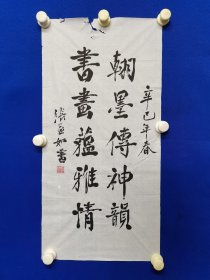 辛巳年春
翰墨傳神韻
書畫蘊雅情